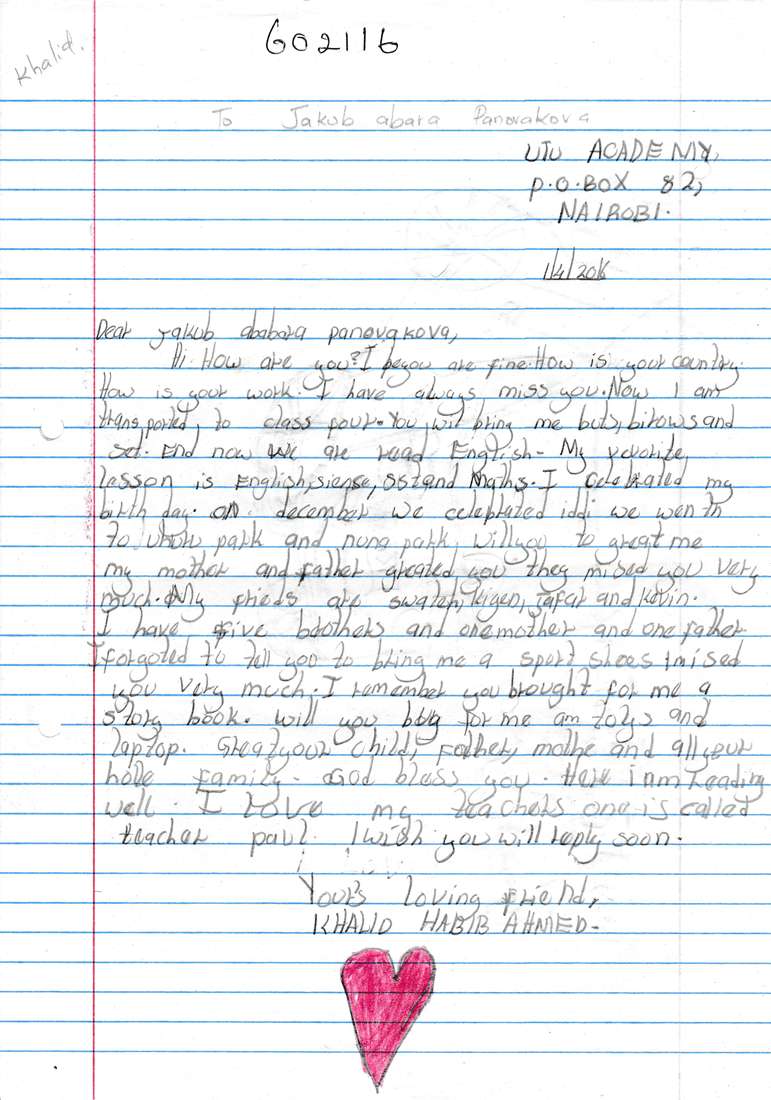 Khalid.
602116
To Jakub abara Panovakova
UTU ACADEMY,
P.O.BOX 82,
NAIROBI.
1/4/2016
Dear yakub ababara panovakova,
Hi. How are you? I you are fine. How is your country.
How is your work. I have always miss you. Now I am
transported to class four. You wil bring me buts, bitows and
set. End now we are read English. My vevorite
lesson is English, siense, SStand Maths. I celebrated my
birth day. on december we celebrated iddi we wenth
to uhuru park and nuna park. will you to great me
my mother and father greated you they mised you very
much. My frieds are swaleh, leigen, Jafar and kevin.
I have five boothers and one mother and one father
I forgoted to tell you to bring me a sport shoes I mised
you very much. I remember you brought for me a
story book. will you buy for me am toys and
laptop. Greatyour child, Father, mothe and all your
hole family. God bless you. Here i am reading
well. I love my teachers one is called
teacher paul. I wish you will reply soon.
Yours loving friend,
KHALID HABIB AHMED.